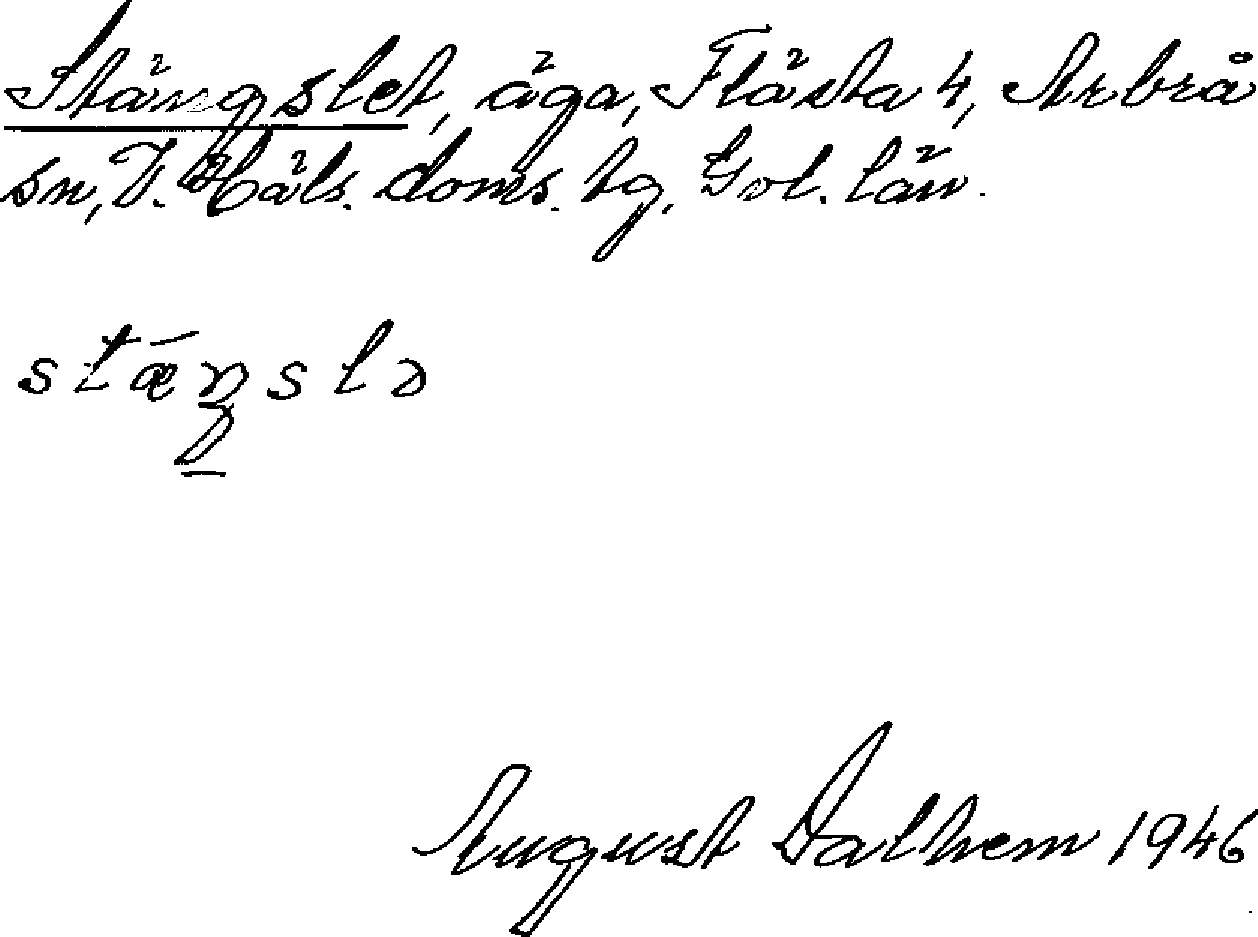 Stängslet, äga, Flästa 4, Arbrå
sn, V. Häls. doms. hg. Gvl. län.
stæŋslə
August Dalhem 1946